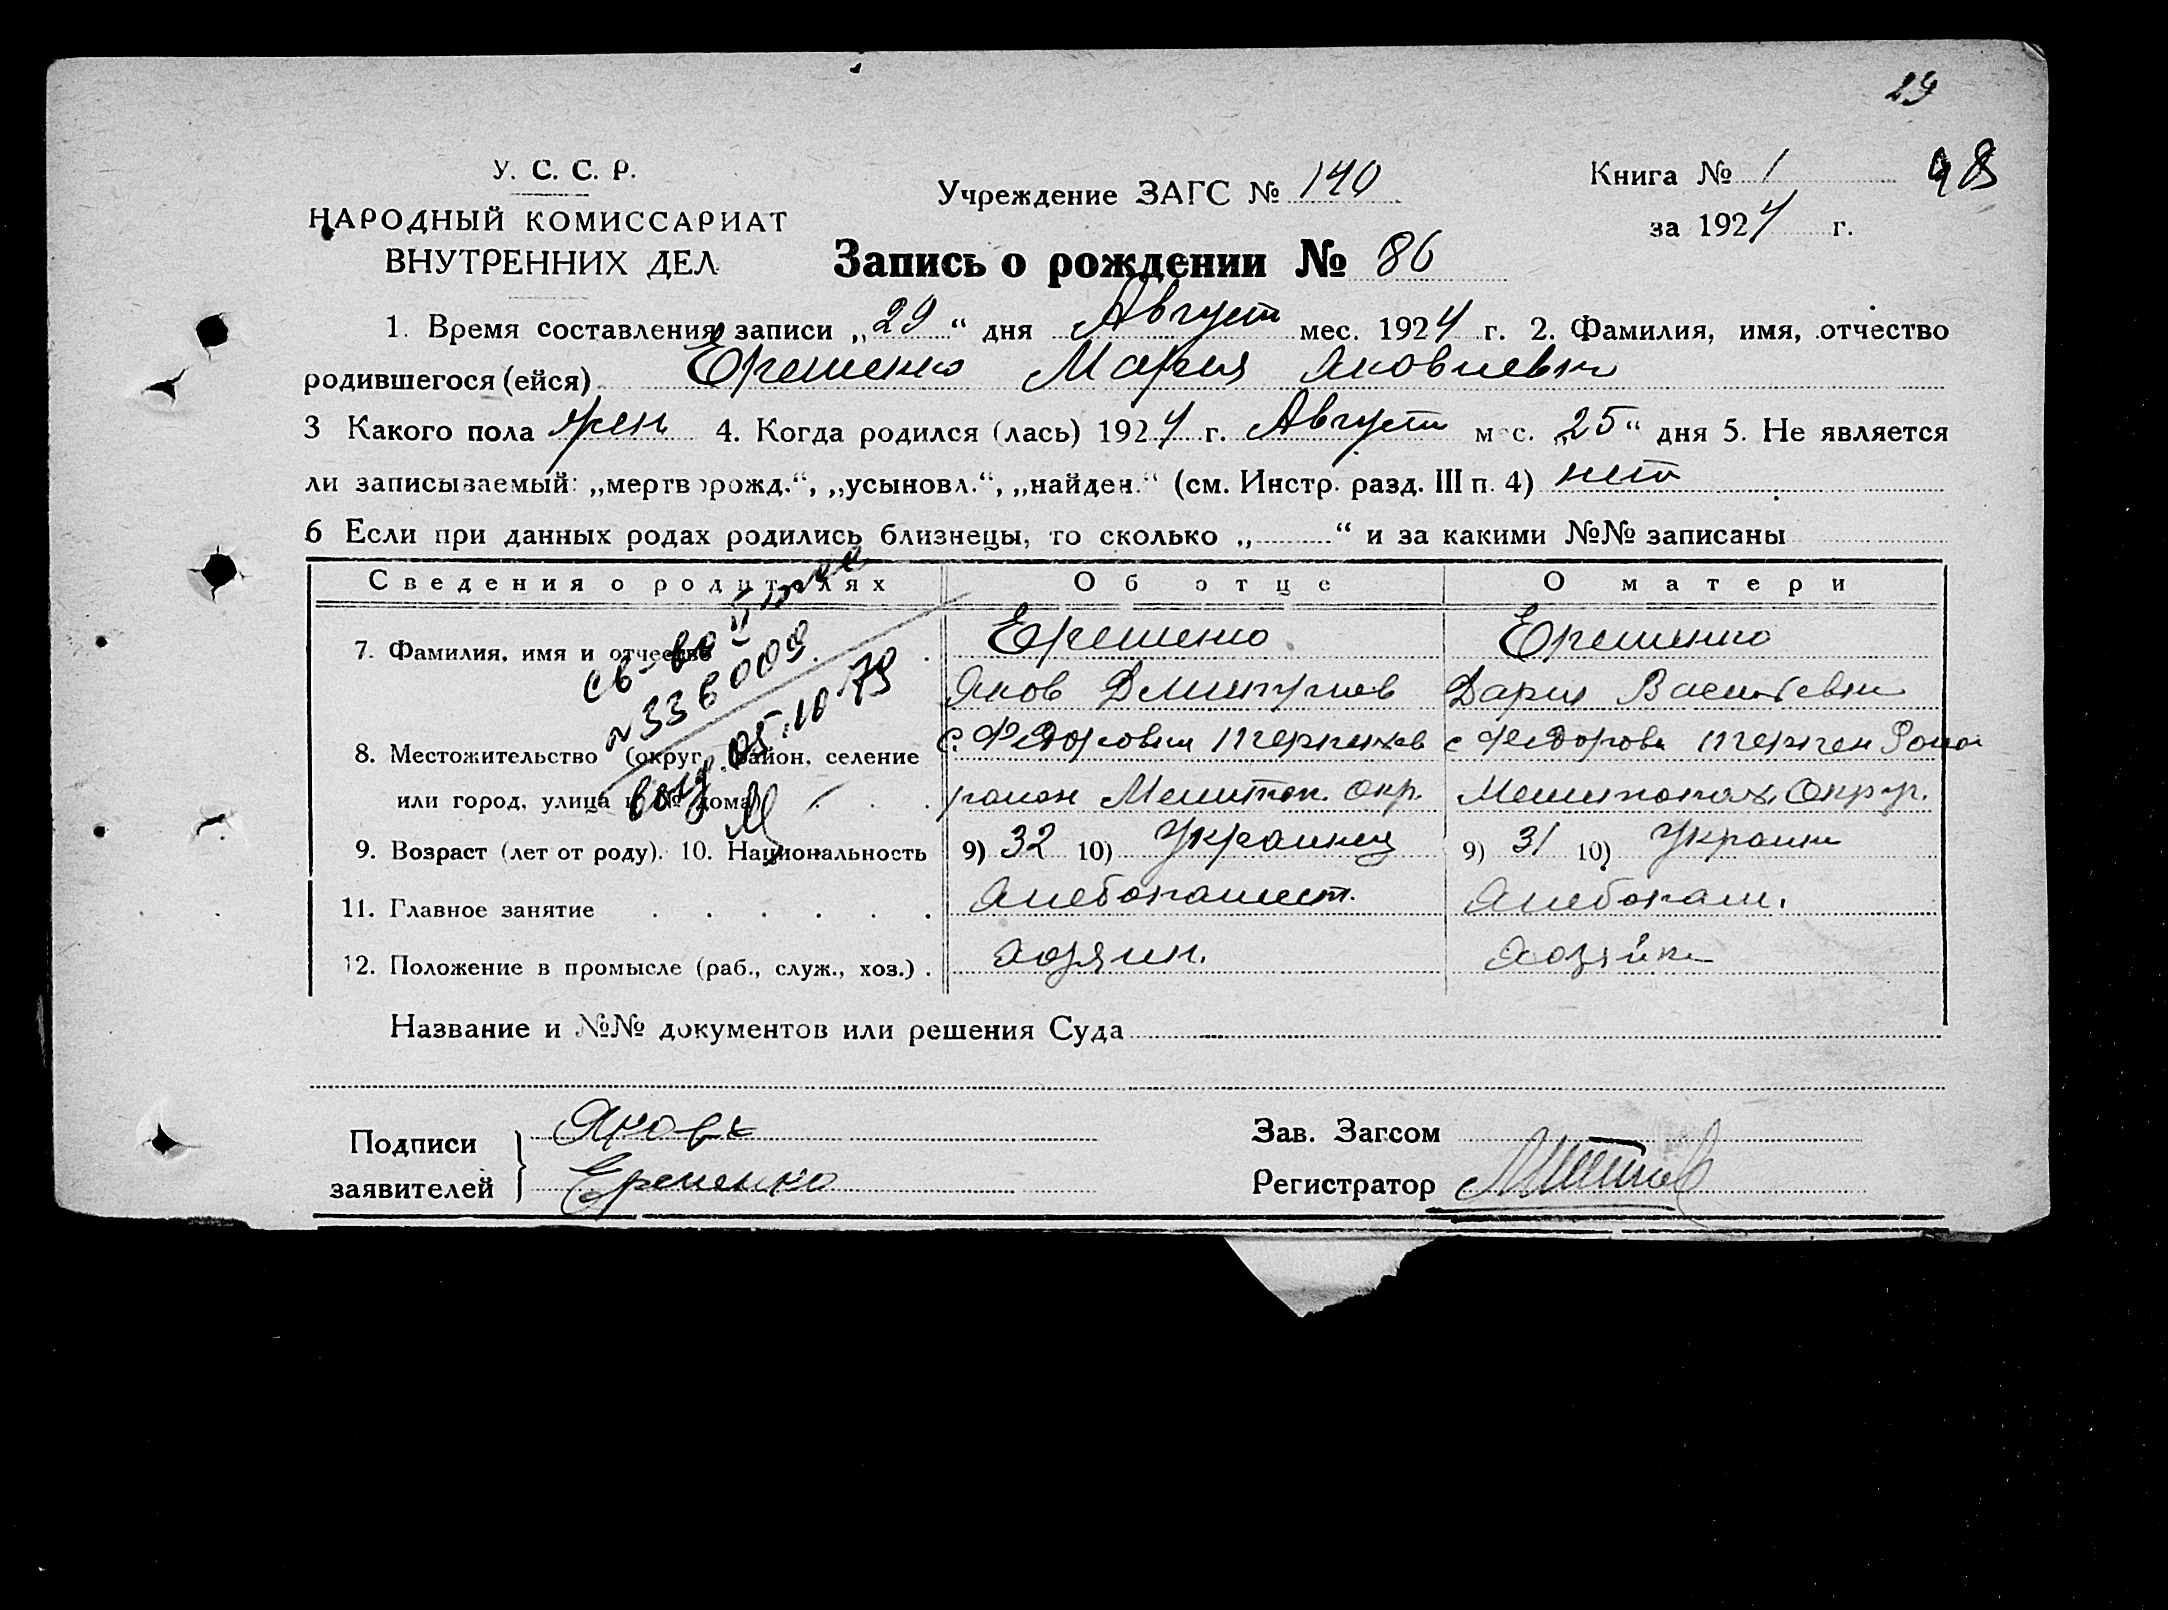 29
У. С. С. Р.
НАРОДНЫЙ КОМИССАРИАТ
ВНУТРЕННИХ ДЕЛ
Учреждение ЗАГС № 140
Книга № 1
98
за 1924 г.
Запись о рождении № 86
1. Время составления записи „29“ дня Август мес. 1924 г. 2. Фамилия, имя, отчество
родившегося (ейся) Ерешенко Мария Яковлевн
3 Какого пола жен 4. Когда родился (лась) 1924 г. Август мес. „25“ дня 5. Не является
ли записываемый: „мертворожд.“, „усыновл.“, „найден.“ (см. Инстр. разд. III п. 4) нет
6 Если при данных родах родились близнецы, то сколько „ “ и за какими №№ записаны
Сведения о родителях Об отце О матери
7. Фамилия, имя и отчество Ерешенко Ерешенко
Яков Дмитриев Дария Васильевн
8. Местожительство (округ, район, селение с. Федоровка с Федоровка
или город, улица и № дома) район Мелитоп. окр. Мелитопол. Округ.
св-во II
№ 336009
выд. 05.10.79
9. Возраст (лет от роду). 10. Национальность 9) 32 10) Украинец 9) 31 10) Украин
11. Главное занятие Хлебопашест. Хлебопаш.
12. Положение в промысле (раб., служ., хоз.) Хозяин. Хозяйка
Название и №№ документов или решения Суда
Подписи заявителей Яковъ
Еременко
Зав. Загсом
Регистратор